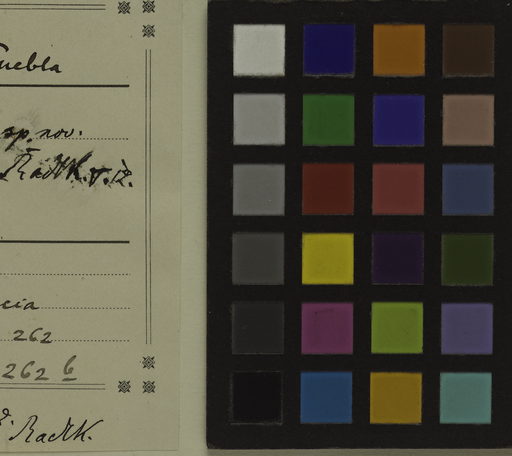 uebla
sp. nov.
Radlk. v. R.
cia
262
262 6
Radlk.